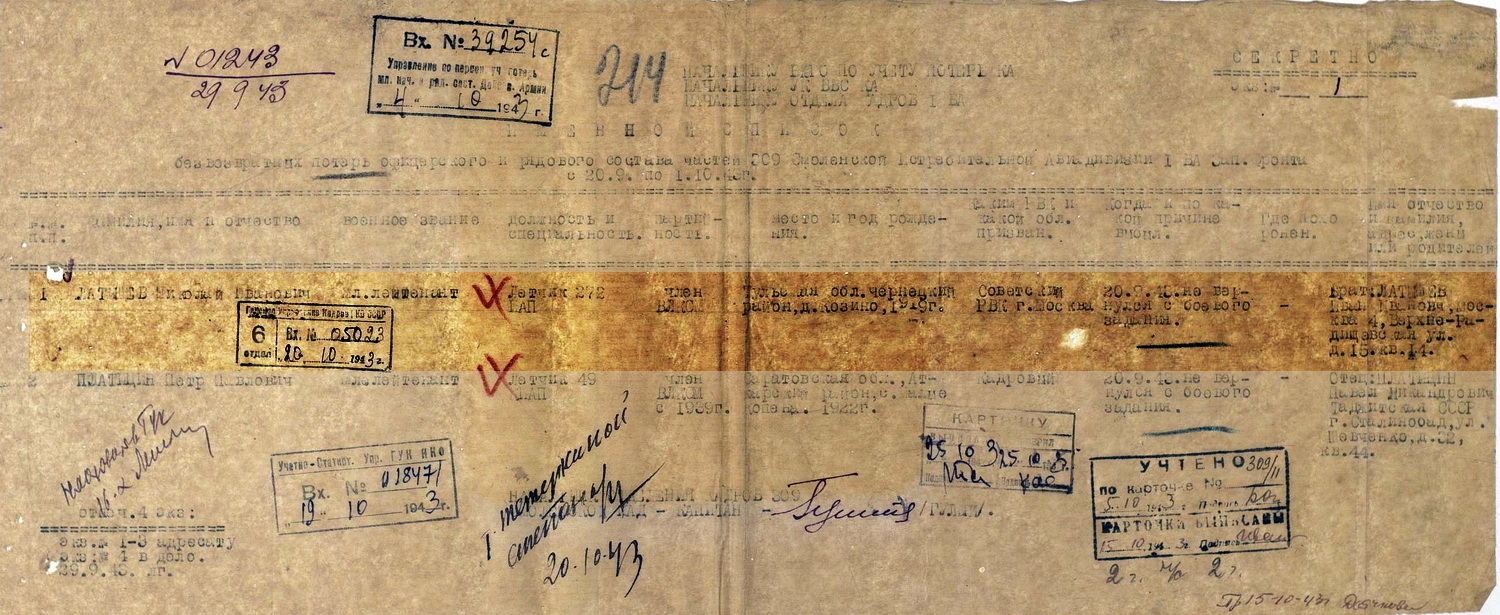 N 01243
29 9 43
Вх. № 39254с
Управление по персон. уч. потерь
мл. нач. и ряд. сост. Действ. Армии
"4" 10 1943 г.
214
НАЧАЛЬНИКУ ПО УЧЕТУ ПОТЕРЬ КА
НАЧАЛЬНИКУ УК ВВС КА
НАЧАЛЬНИКУ ОТДЕЛА КАДРОВ 1 ВА
СЕКРЕТНО
экз.№ 1
ИМЕННОЙ СПИСОК
безвозвратных потерь офицерского и рядового состава частей 309 Смоленской Истребительной Авиадивизии 1 ВА Зап. фронта
с 20.9. по 1.10.43г.
п.п. Фамилия,имя и отчество военное звание должность и специальность. партий- ность. место и год рожде- ния. Каким РВК и какой обл. призван. Когда и по ка- кой причине выбыл. Где похо ронен. Имя отчество и фамилия, адрес,жены или родителей
1 ЛАТЫШЕВ Николай Иванович мл.лейтенант Летчик 272 ИАП член ВЛКСМ Тульская обл.Чернецкий район,д.Козино,1919г. Советский РВК г.Москва 20.9.43.не вер- нулся с боевого задания. - Брат:ЛАТЫШЕВ Иван Иванович,мос- ква 4, Верхне-Ра- дищевская ул. д.15.кв.14.
6 отдел Вх. № 05023
"20" 10 1943 г.
2 ПЛАТИЦИН Петр Павлович мл.лейтенант Летчик 49 ИАП член ВЛКСМ с 1939г. Саратовская обл.,Ат- карский район,с. 1922г. Кадровый 20.9.43.не вер- нулся с боевого задания. - Отец:ПЛАТИЦИН Павел Никандрович Таджикская СССР г.Сталинобад,ул. Шевченко,д.52, кв.44.
Учетно-Статист. Упр. ГУК НКО
Вх. № 01847
"19" 10 1943 г.
20.10.43
КАРТОЧКУ
25 10 3 25.10.
НАЧАЛЬНИК ОТДЕЛЕНИЯ КАДРОВ 309
- КАПИТАН - /ГУЛИН/.
УЧТЕНО 309/11
по карточке №
5.10 1943 г. Подпись
КАРТОЧКА ВЫПИСАНЫ
15 10 1943 г. Подпись
2 г. 2 г.
15-10-43г
отпеч.4 экз:
экз.№ 1-3 адресату
экз:№ 4 в дело.
29.9.43. лг.